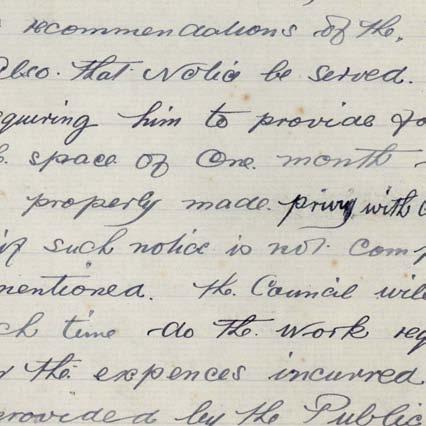 recommendations of the.
Also. that Notice be served.
equiring him to provide fo
space of One month
properly made. privy with
if such notice is not comp
mentioned. the Council wil
ch time do the work req
the expences incurred
provided by the Public